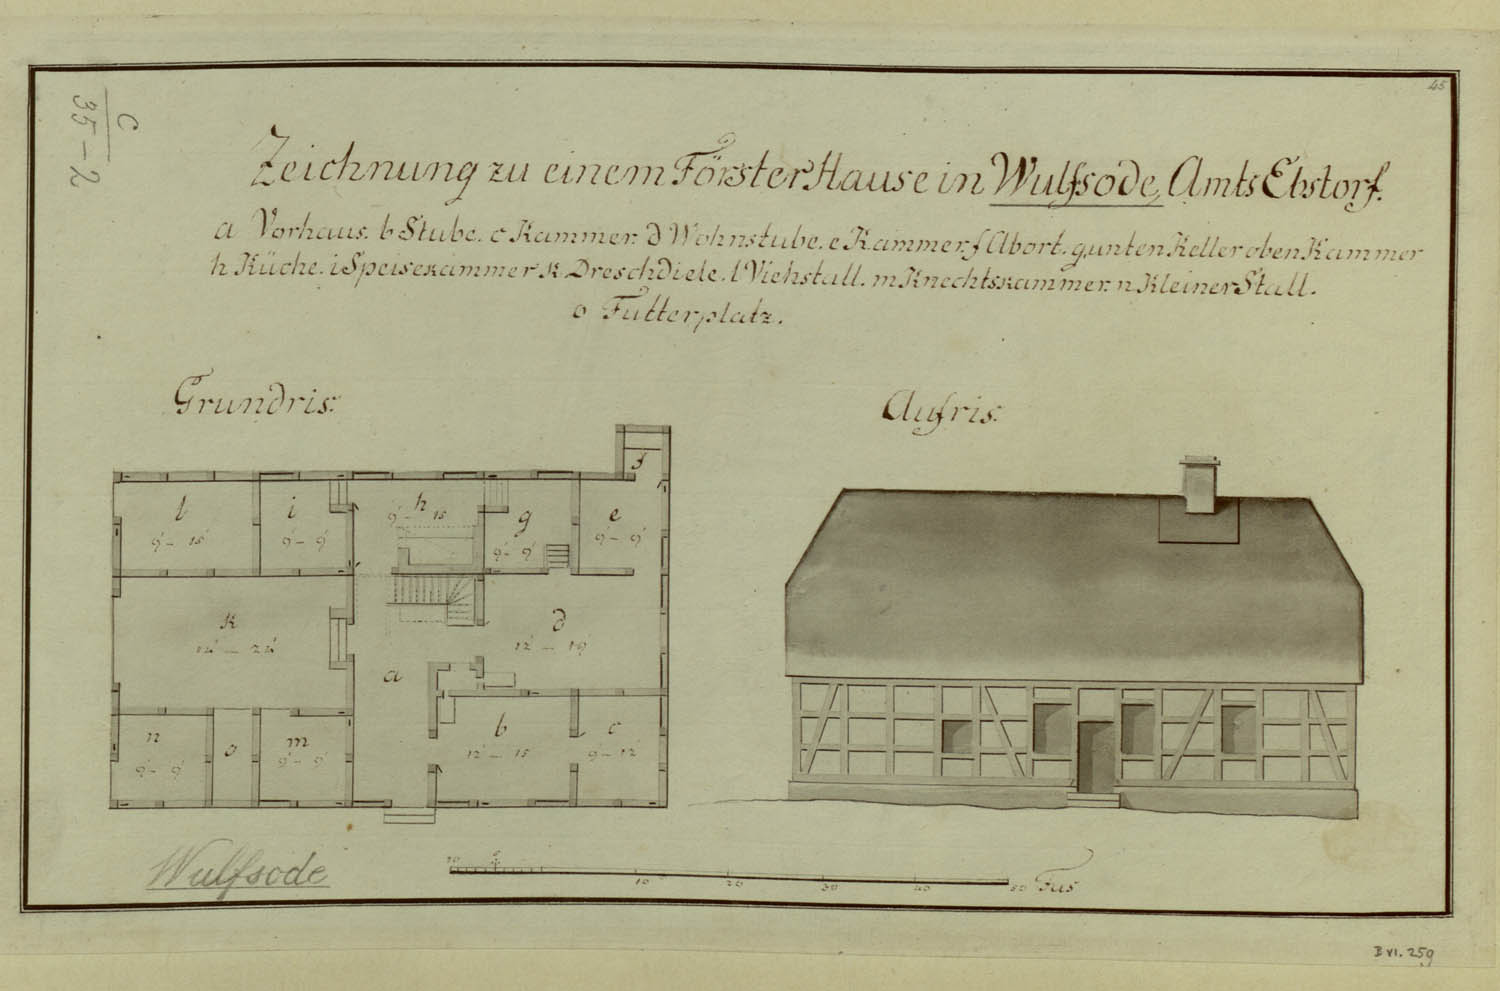 45
C
35-2
Zeichnung zu einem Förster Hause in Wulfsode, Amts Ebstorf.
a Vorhaus. b Stube. c Kammer. d Wohnstube. e Kammer. f Abort. g, unten Keller oben Kammer
h Küche. i Speisekammer k Dreschdiele. l Viehstall. m Knechtskammer. n Kleiner Stall.
o Futterplatz.
Grundris.
Aufris.
f
l
9'- 15'
i
9'- 9'
h
9'- 15
g
9'- 9'
e
9'- 9'
k
d
12'- 19'
a
n
9'- 9'
o
m
9'- 9'
b
12'- 15
c
9'- 12'
Wulfsode
10 5 10 20 30 40 50 Fus
B VI. 25g